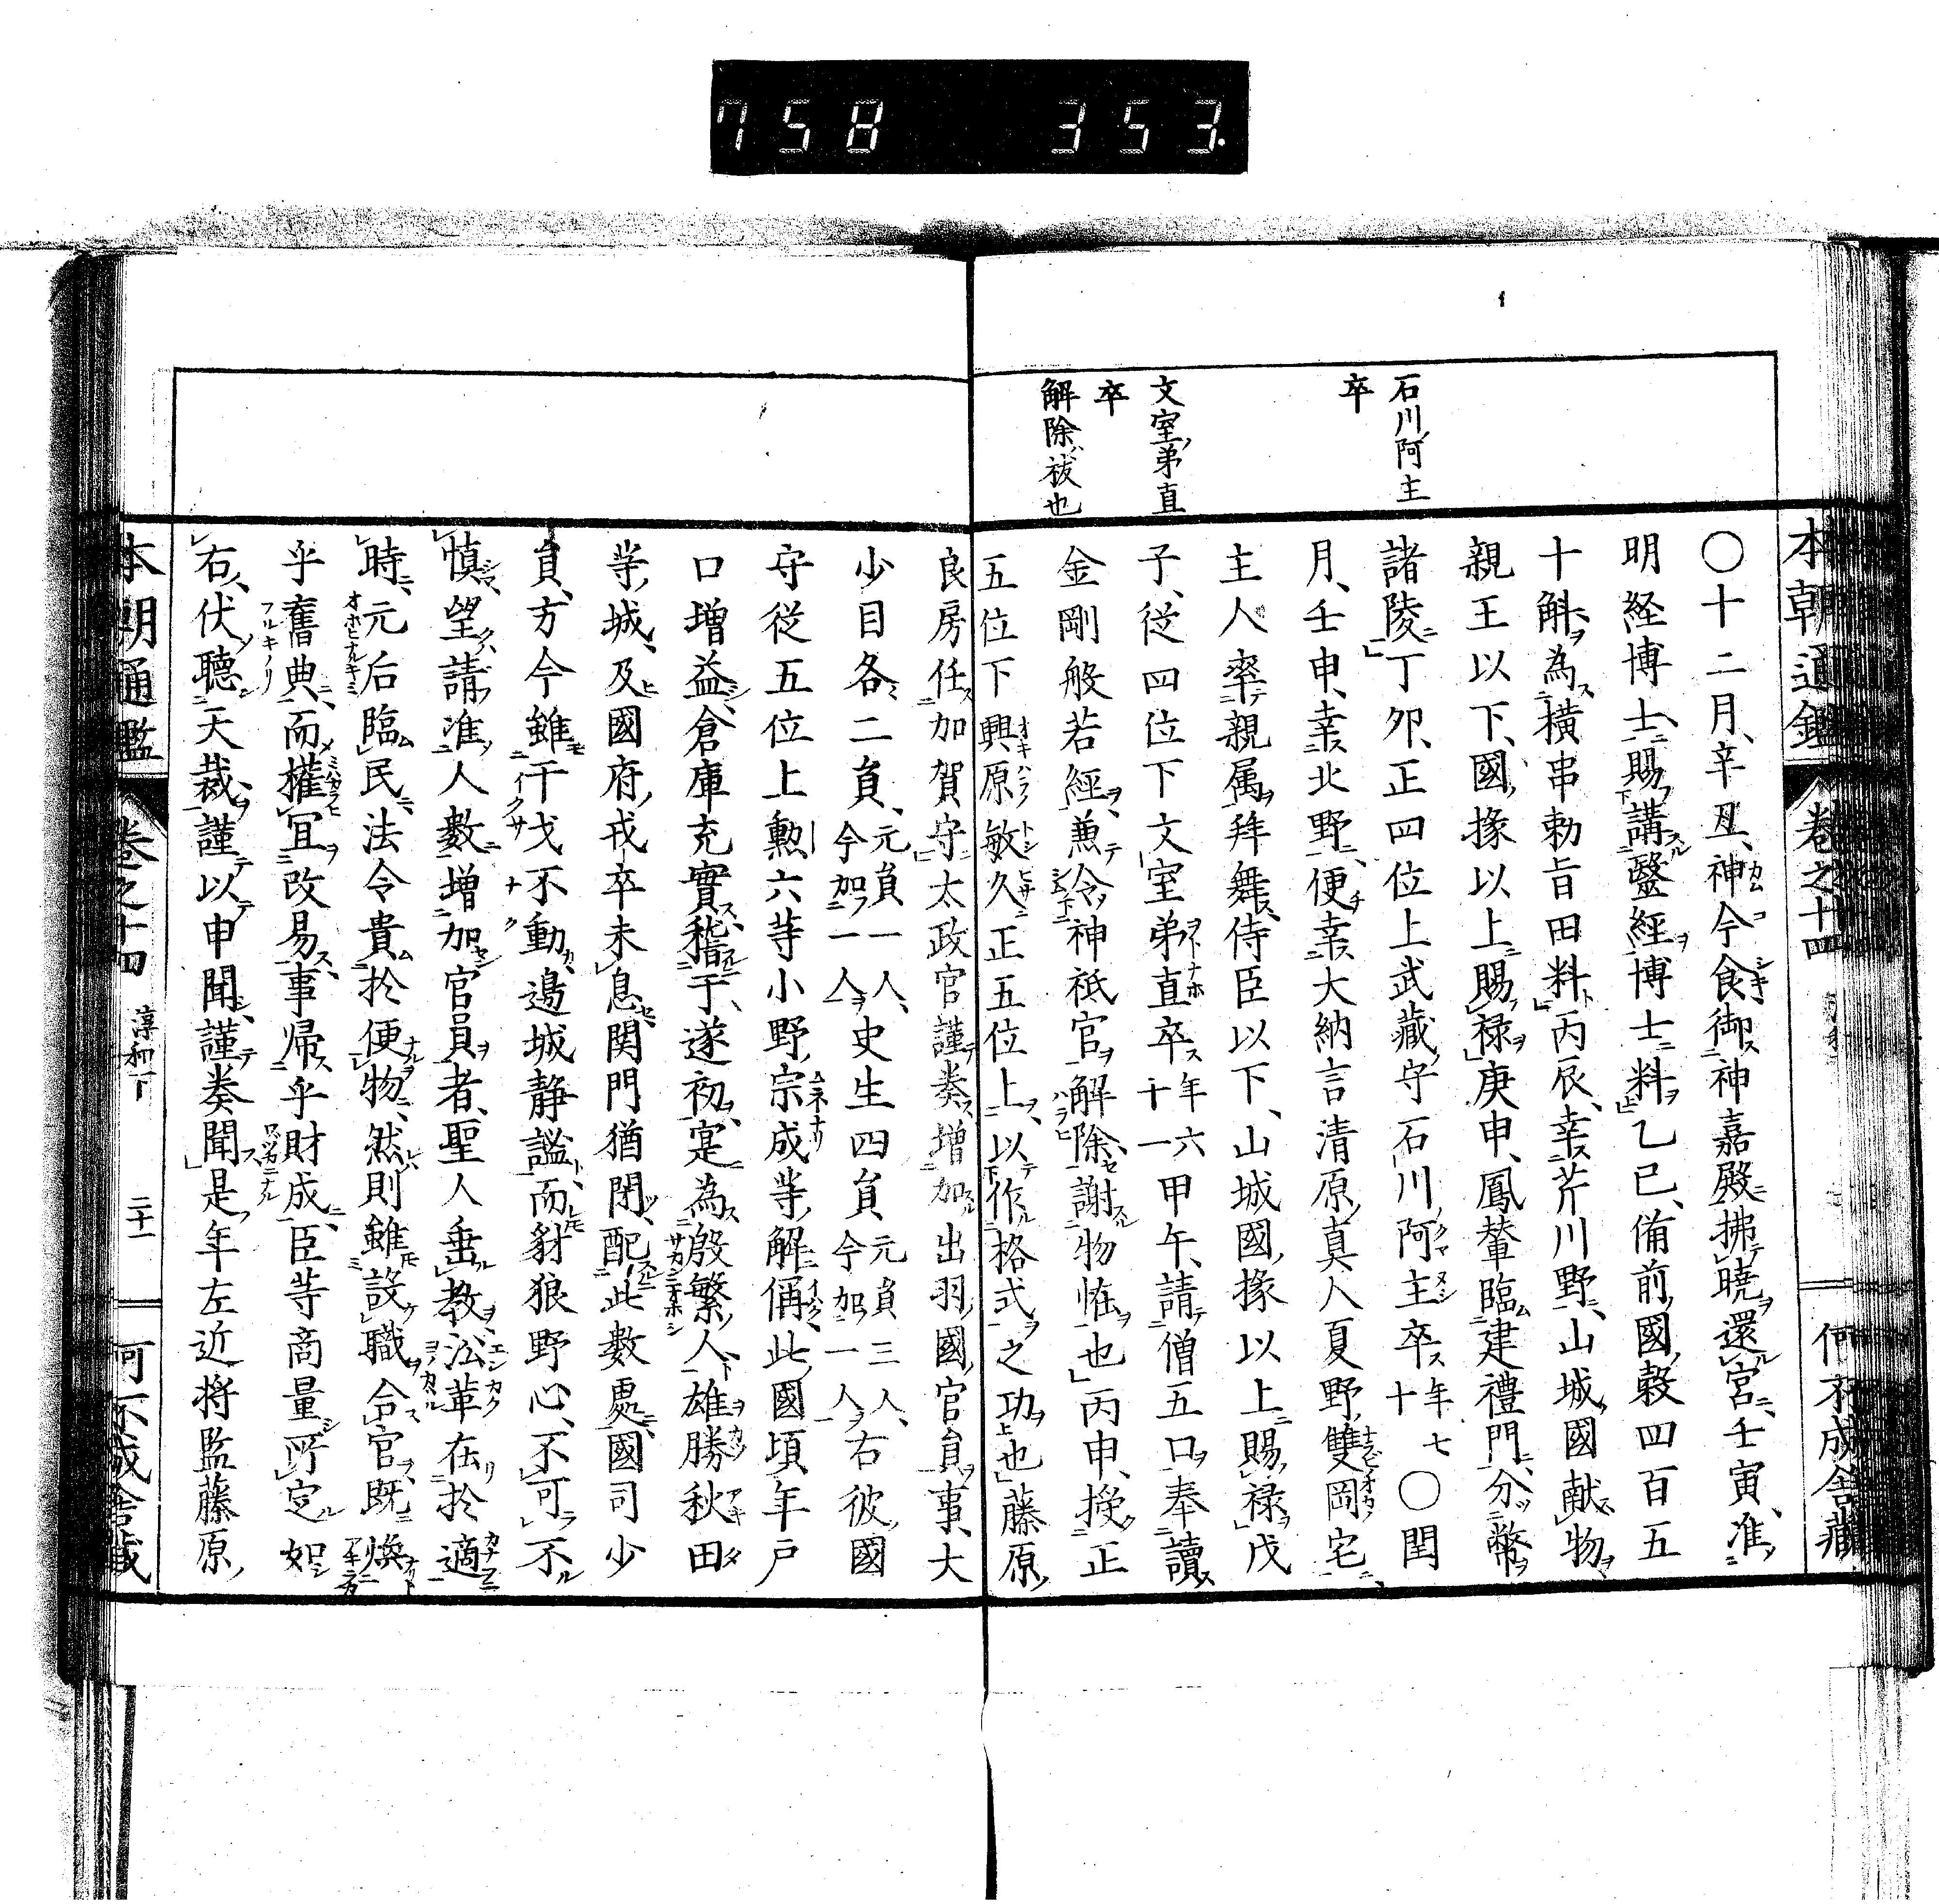 758 353.
本朝通鑑 卷之十四 何不成舍藏
石川阿主
卒
文室弟直
卒
解除祓也
〇十二月、辛丑、神今食御神嘉殿拂曉還宮、壬寅、准
明経博士、賜講醫經博士料乙巳、備前國、穀四百五
十斛、為橫串勅旨田料丙辰、幸芹川野、山城國献物
親王以下、國掾以上賜禄庚申、鳳輦臨建禮門、分幣
諸陵丁卯、正四位上武藏守石川阿主卒年七十〇閏
月、壬申、幸北野、便幸大納言清原真人夏野雙岡宅、
主人率親属拜舞、侍臣以下、山城國掾以上賜禄戊
子、從四位下文室弟直卒年六十一甲午、請僧五口奉讀
金剛般若經、兼令神祇官解除、謝物恠也丙申、授正
五位下興原敏久正五位上、以作格式之功也藤原
良房任加賀守太政官謹奏、增加出羽國官員事、大
少目各二員、元員一人、今加一人史生四員、元員三人、今加一人右彼國
守従五位上勲六等小野宗成等解偁、此國頃年戸
口增益、倉庫充實、稽于遂初、寔為殷繁、人雄勝秋田
等城、及國府、戎卒未息、関門猶閉、配此數處、國司少
員、方今雖干戈不動、邊城静謐、而豺狼野心、不可不
慎、望請准人數增加官員者、聖人垂教、㳂革在於適
時、元后臨民、法令貴於便物、然則雖設職合官、既煥
乎舊典、而權宜改易、事帰乎財成、臣等商量所定如
右、伏聽天裁、謹以申聞、謹奏聞是年左近将監藤原
本朝通鑑 卷之十四 淳和下 二十一 何不成舍藏